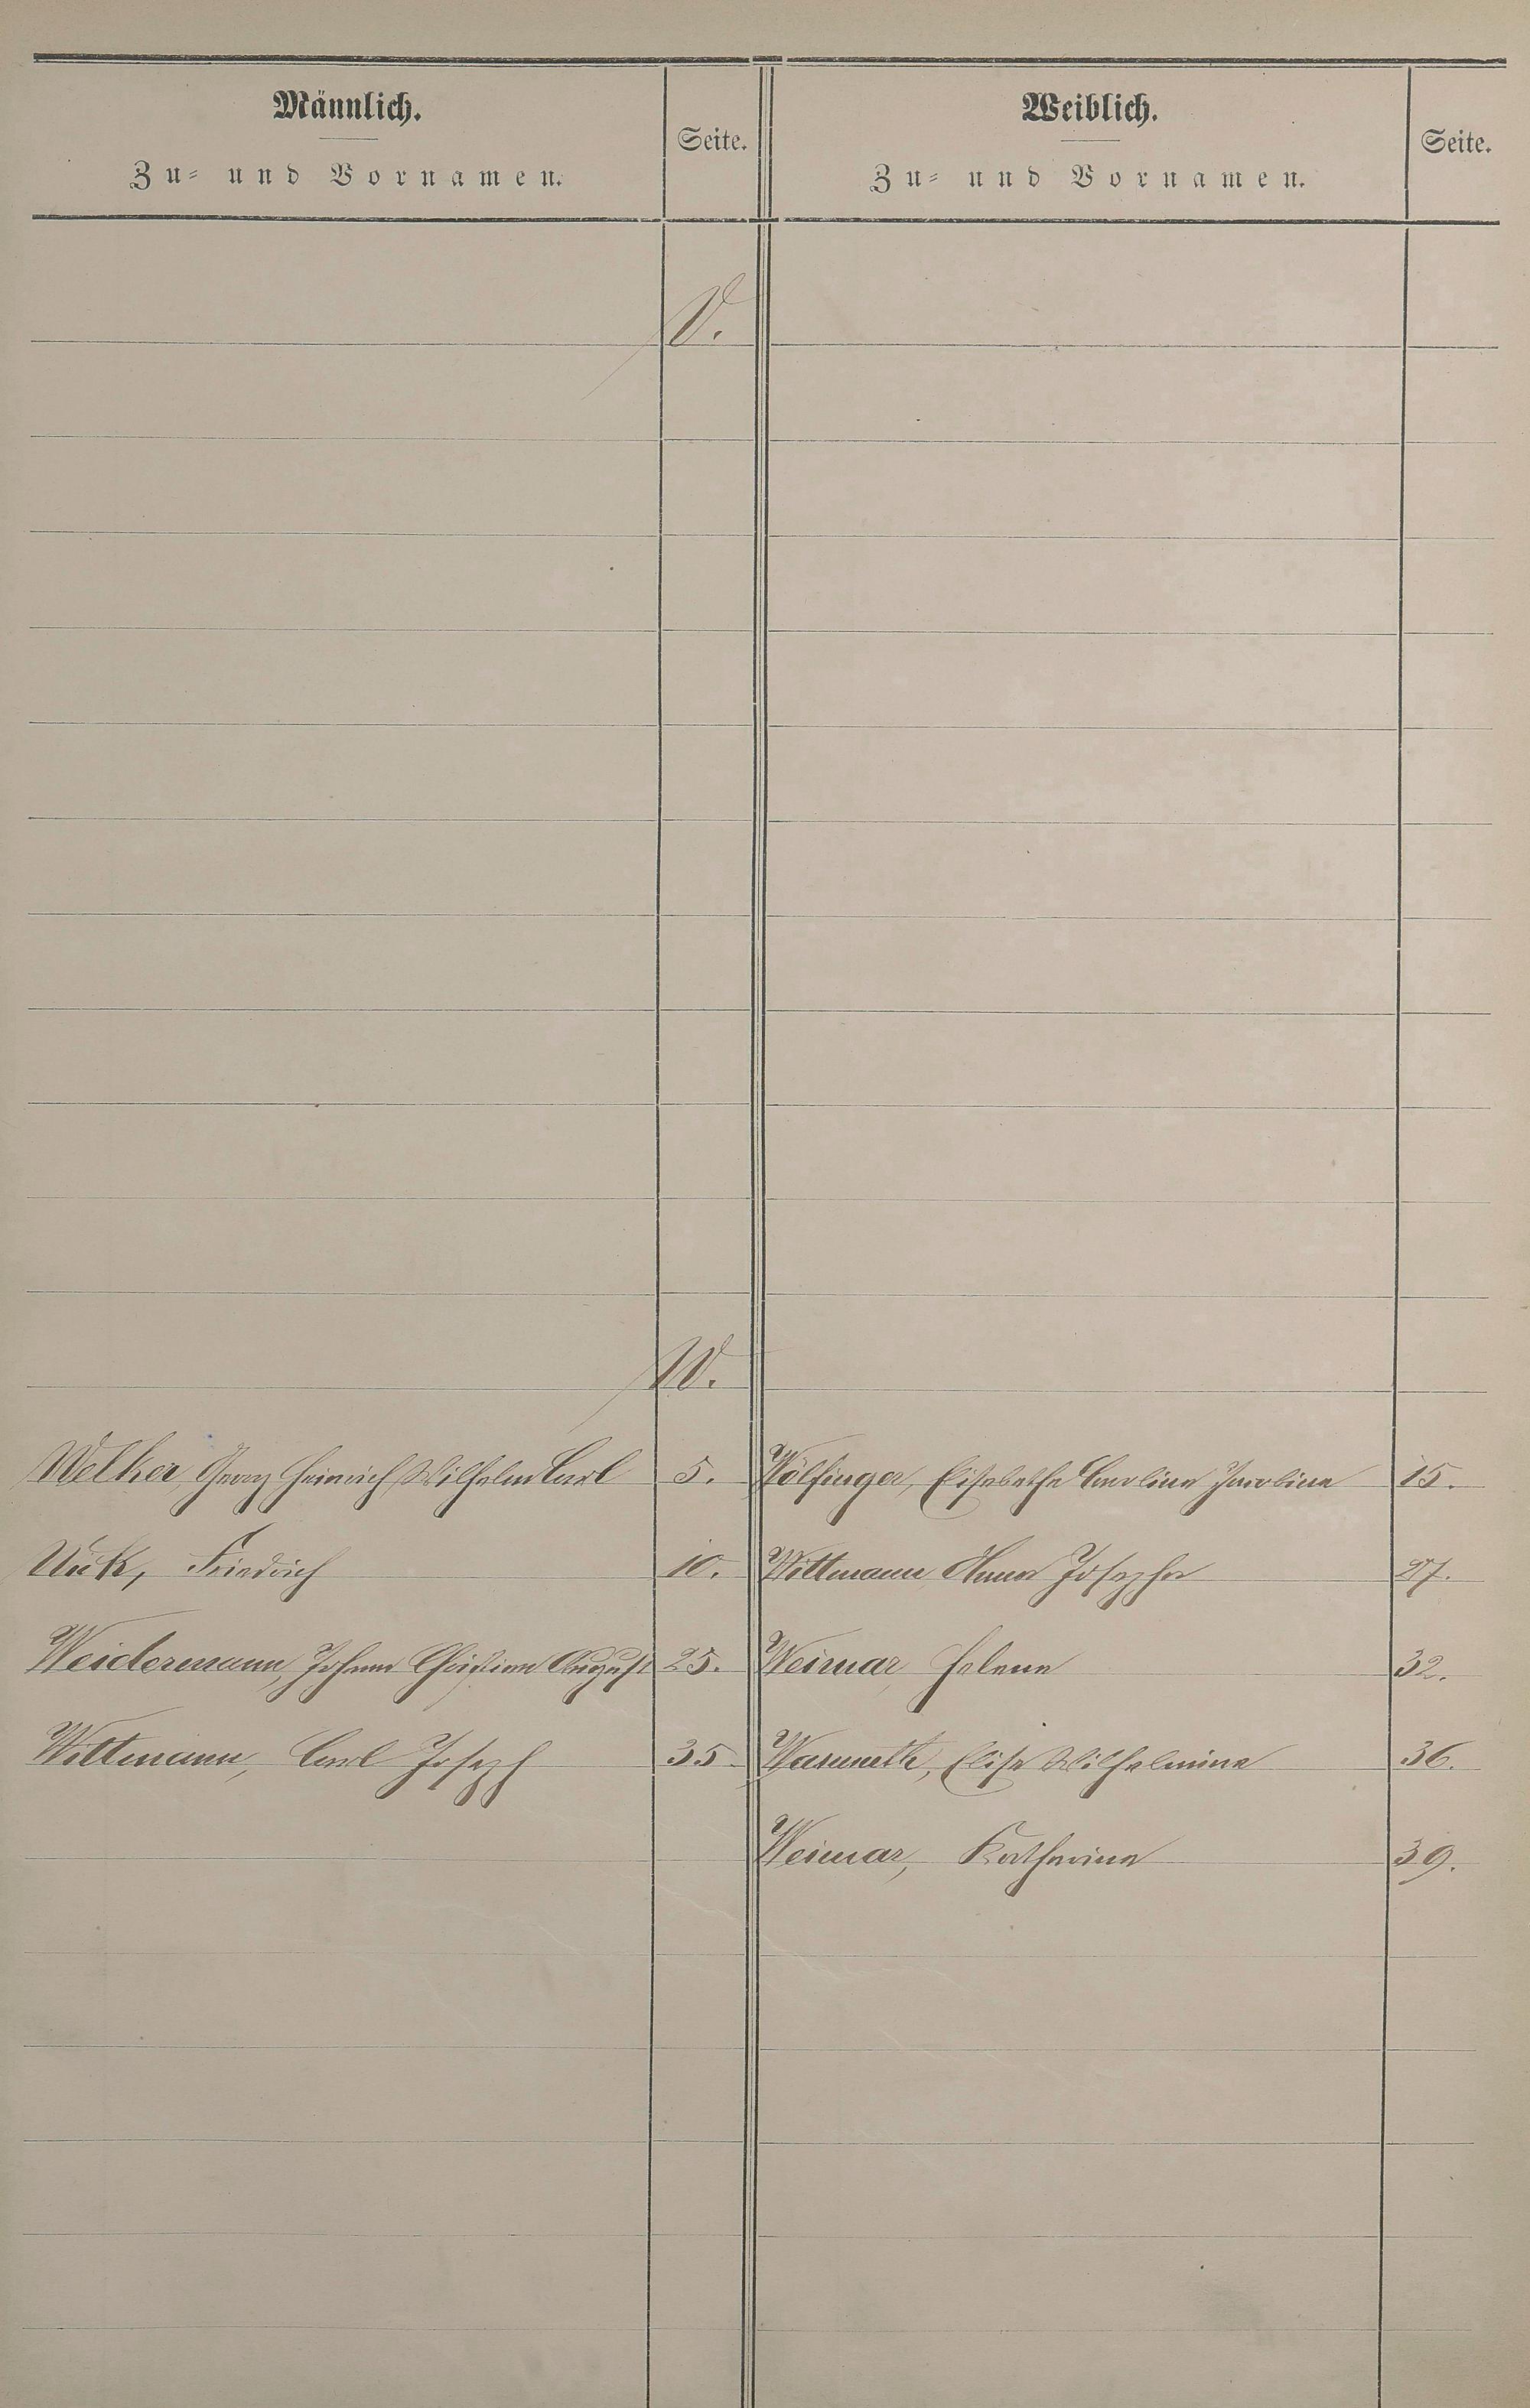 Männlich.
Zu- und Vornamen.
Seite.
Weiblich.
Zu- und Vornamen.
Seite.
V.
W.
Welker, Georg Heinrich Wilhelm Carl 5. Wölfinger, Elisabetha Carolina Jacobina 15.
Friedrich 10. Wittmann, Anna Josepha 27.
Weidermann, Johann Christian August 25. Weimar, Helena 32.
Wittmann, Carl Joseph 35 Wasmuth, Elisa Wilhelmina 36.
Weimar, Katharina 39.